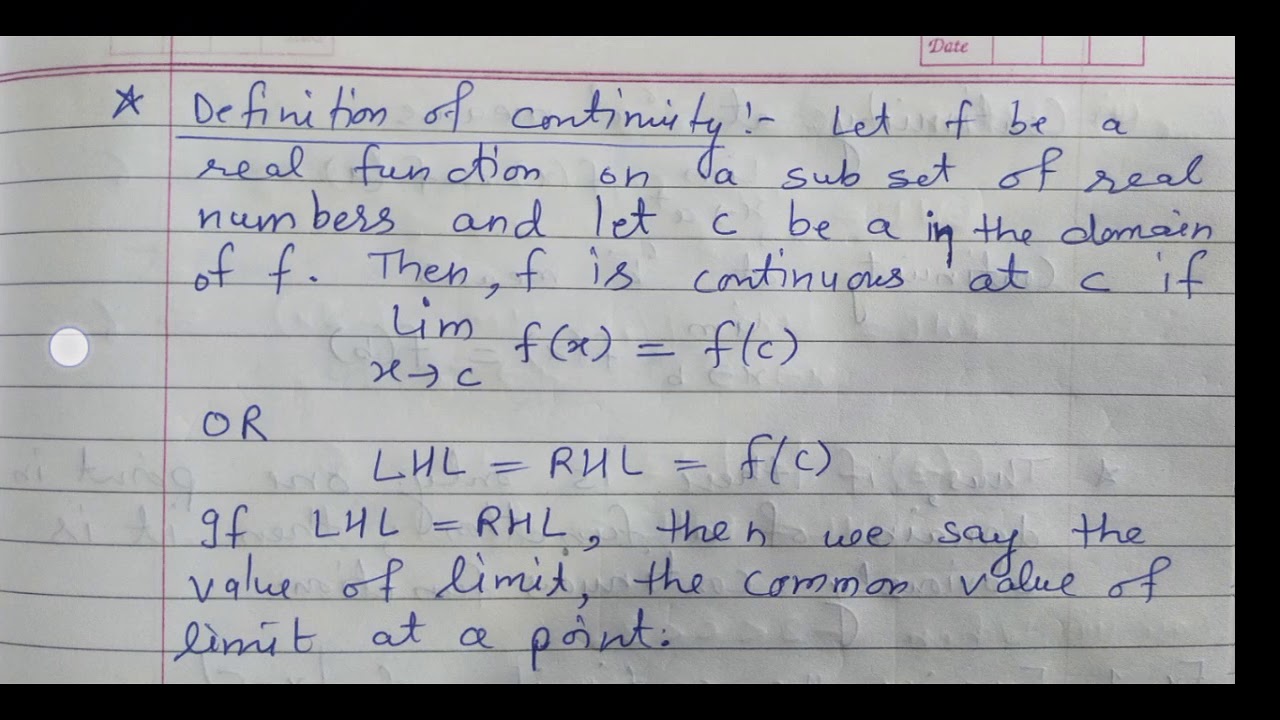 Date
☆ Definition of continuity:- Let f be a
real function on a sub set of real
numbers and let c be a in the domain
of f. Then, f is continuous at c if
Lim f(x) = f(c)
x→c
OR
LHL = RHL = f(c)
If LHL = RHL, then we say the
value of limit, the common value of
limit at a point.